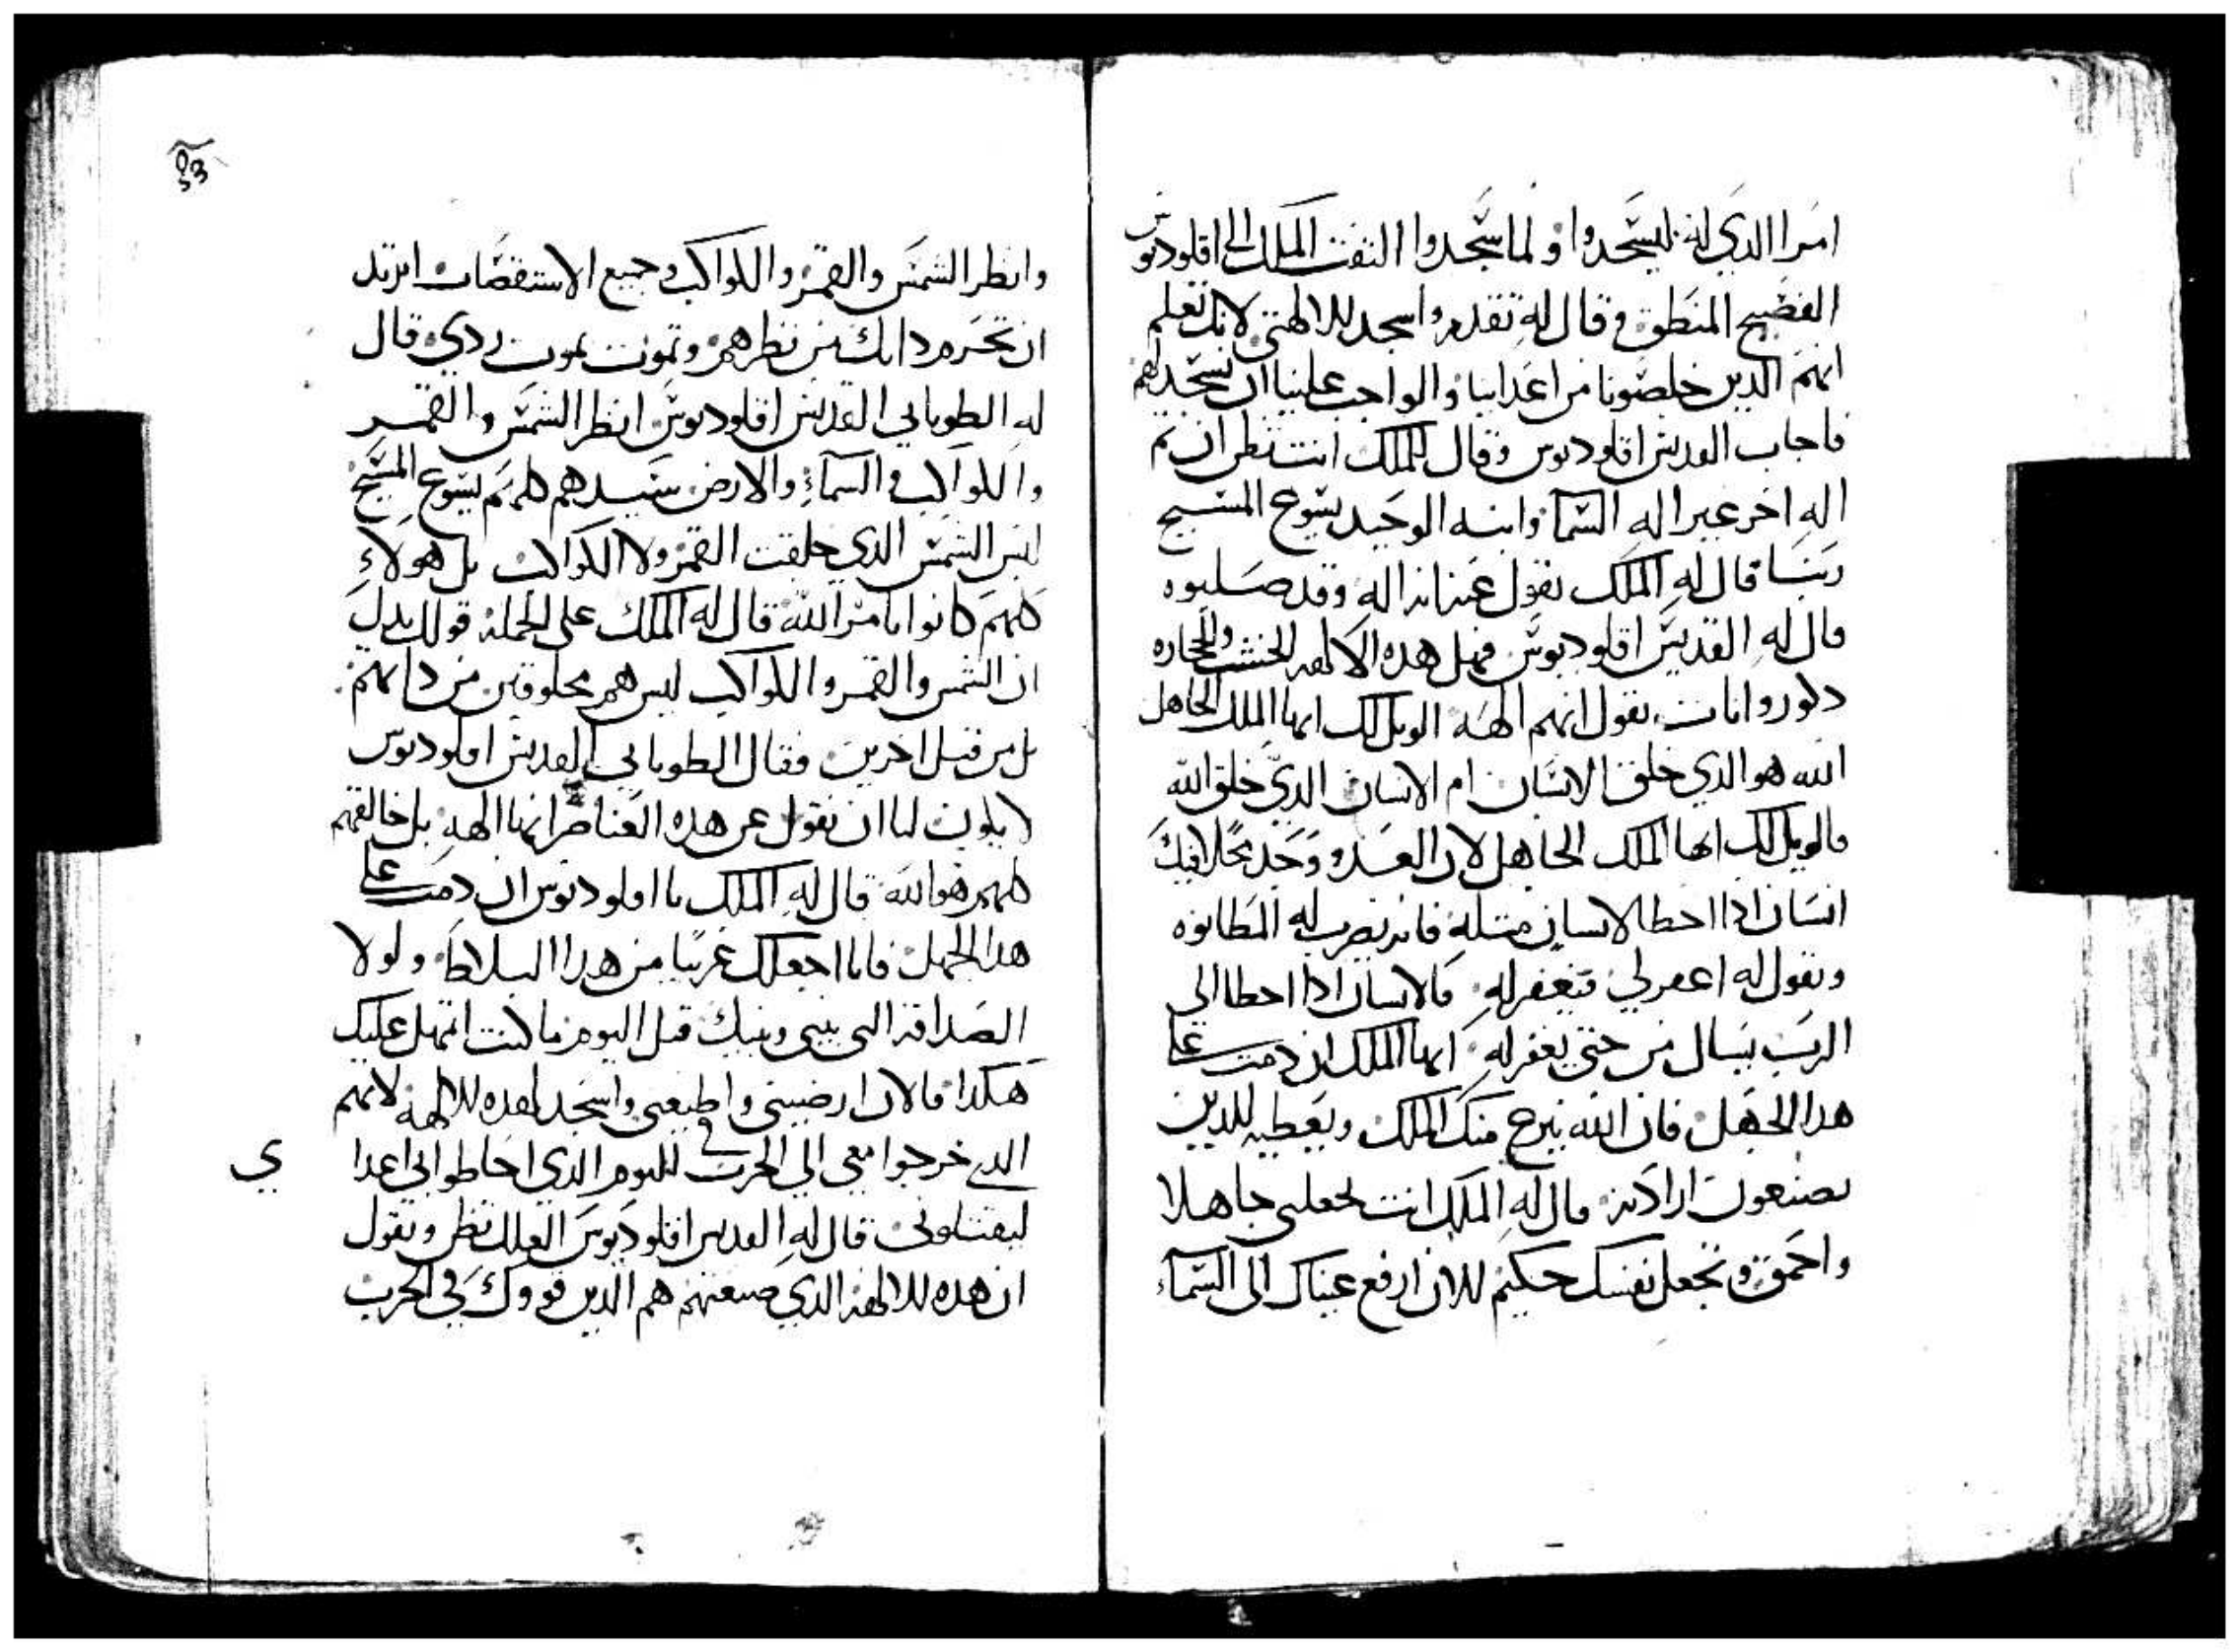 امر الدي له ليسجدوا ولما سجدوا التفت الملك الى اقلوديوس
الفصيح المنطق وقال له تقدم واسجد للالهتي لانك تعلم
انهم الدين خلصونا من اعداينا والواجب علينا ان نسجد لهم
فاجاب القديس اقلوديوس وقال للملك انت تظن ان تم
اله اخر غير اله السما وابنه الوحيد يسوع المسيح
ربنا قال له الملك تقول عنه انه اله وقد صلبوه
قال له القديس اقلوديوس فهل هده الالهه الخشب والحجاره
دكور واناث تقول انهم الهه الويل لك ايها الملك الجاهل
الله هو الدي خلق الانسان ام الانسان الدي خلق الله
فالويل لك ايها الملك الجاهل لان العدو وجد محلا فيك
انسان ادا اخطا لانسان مثله فانه يضرب له المطانوه
ويقول له اغفر لي فيغفر له فالانسان ادا اخطا الى
الرب يسال من حتى يغفر له ايها الملك ان دمت على
هدا الجهل فان الله ينزع منك الملك ويعطيه للدين
يصنعون ارادته قال له الملك انت تجعلني جاهلا
واحمق وتجعل نفسك حكيم للان ارفع عيناك الى السماء
وانظر الشمس والقمر والكواكب وجميع الاستقصات اتريد
ان تحرم داتك من نظرهم وتموت بموت ردي قال
له الطوباني القديس اقلوديوس انظر الشمس والقمر
والكواكب والسماء والارض سيدهم كلهم يسوع المسيح
ليس الشمس الدي خلقت القمر ولا الكواكب بل هولاء
كلهم كانوا بامر الله قال له الملك على الجمله قولك يدل
ان الشمس والقمر والكواكب ليس هم مخلوقين من داتهم
بل من قبل اخرين فقال الطوباني القديس اقلوديوس
لا يكون لنا ان نقول عن هده العناصر انها الهه بل خالقهم
كلهم هو الله قال له الملك يا اقلوديوس ان دمت على
هدا الجهل فانا اجعلك غريبا من هدا البلاط ولولا
الصداقه التي بيني وبينك قبل اليوم ما كنت اتمهل عليك
هكدا فالان ارضيني واطيعني واسجد لهده للالهه لانهم
الدي خرجوا معي الى الحرب في اليوم الدي احاطوا بي اعدا
ي
ليقتلوني قال له القديس اقلوديوس العلك تظن وتقول
ان هده للالهه الدي صنعتهم هم الدين قووك في الحرب